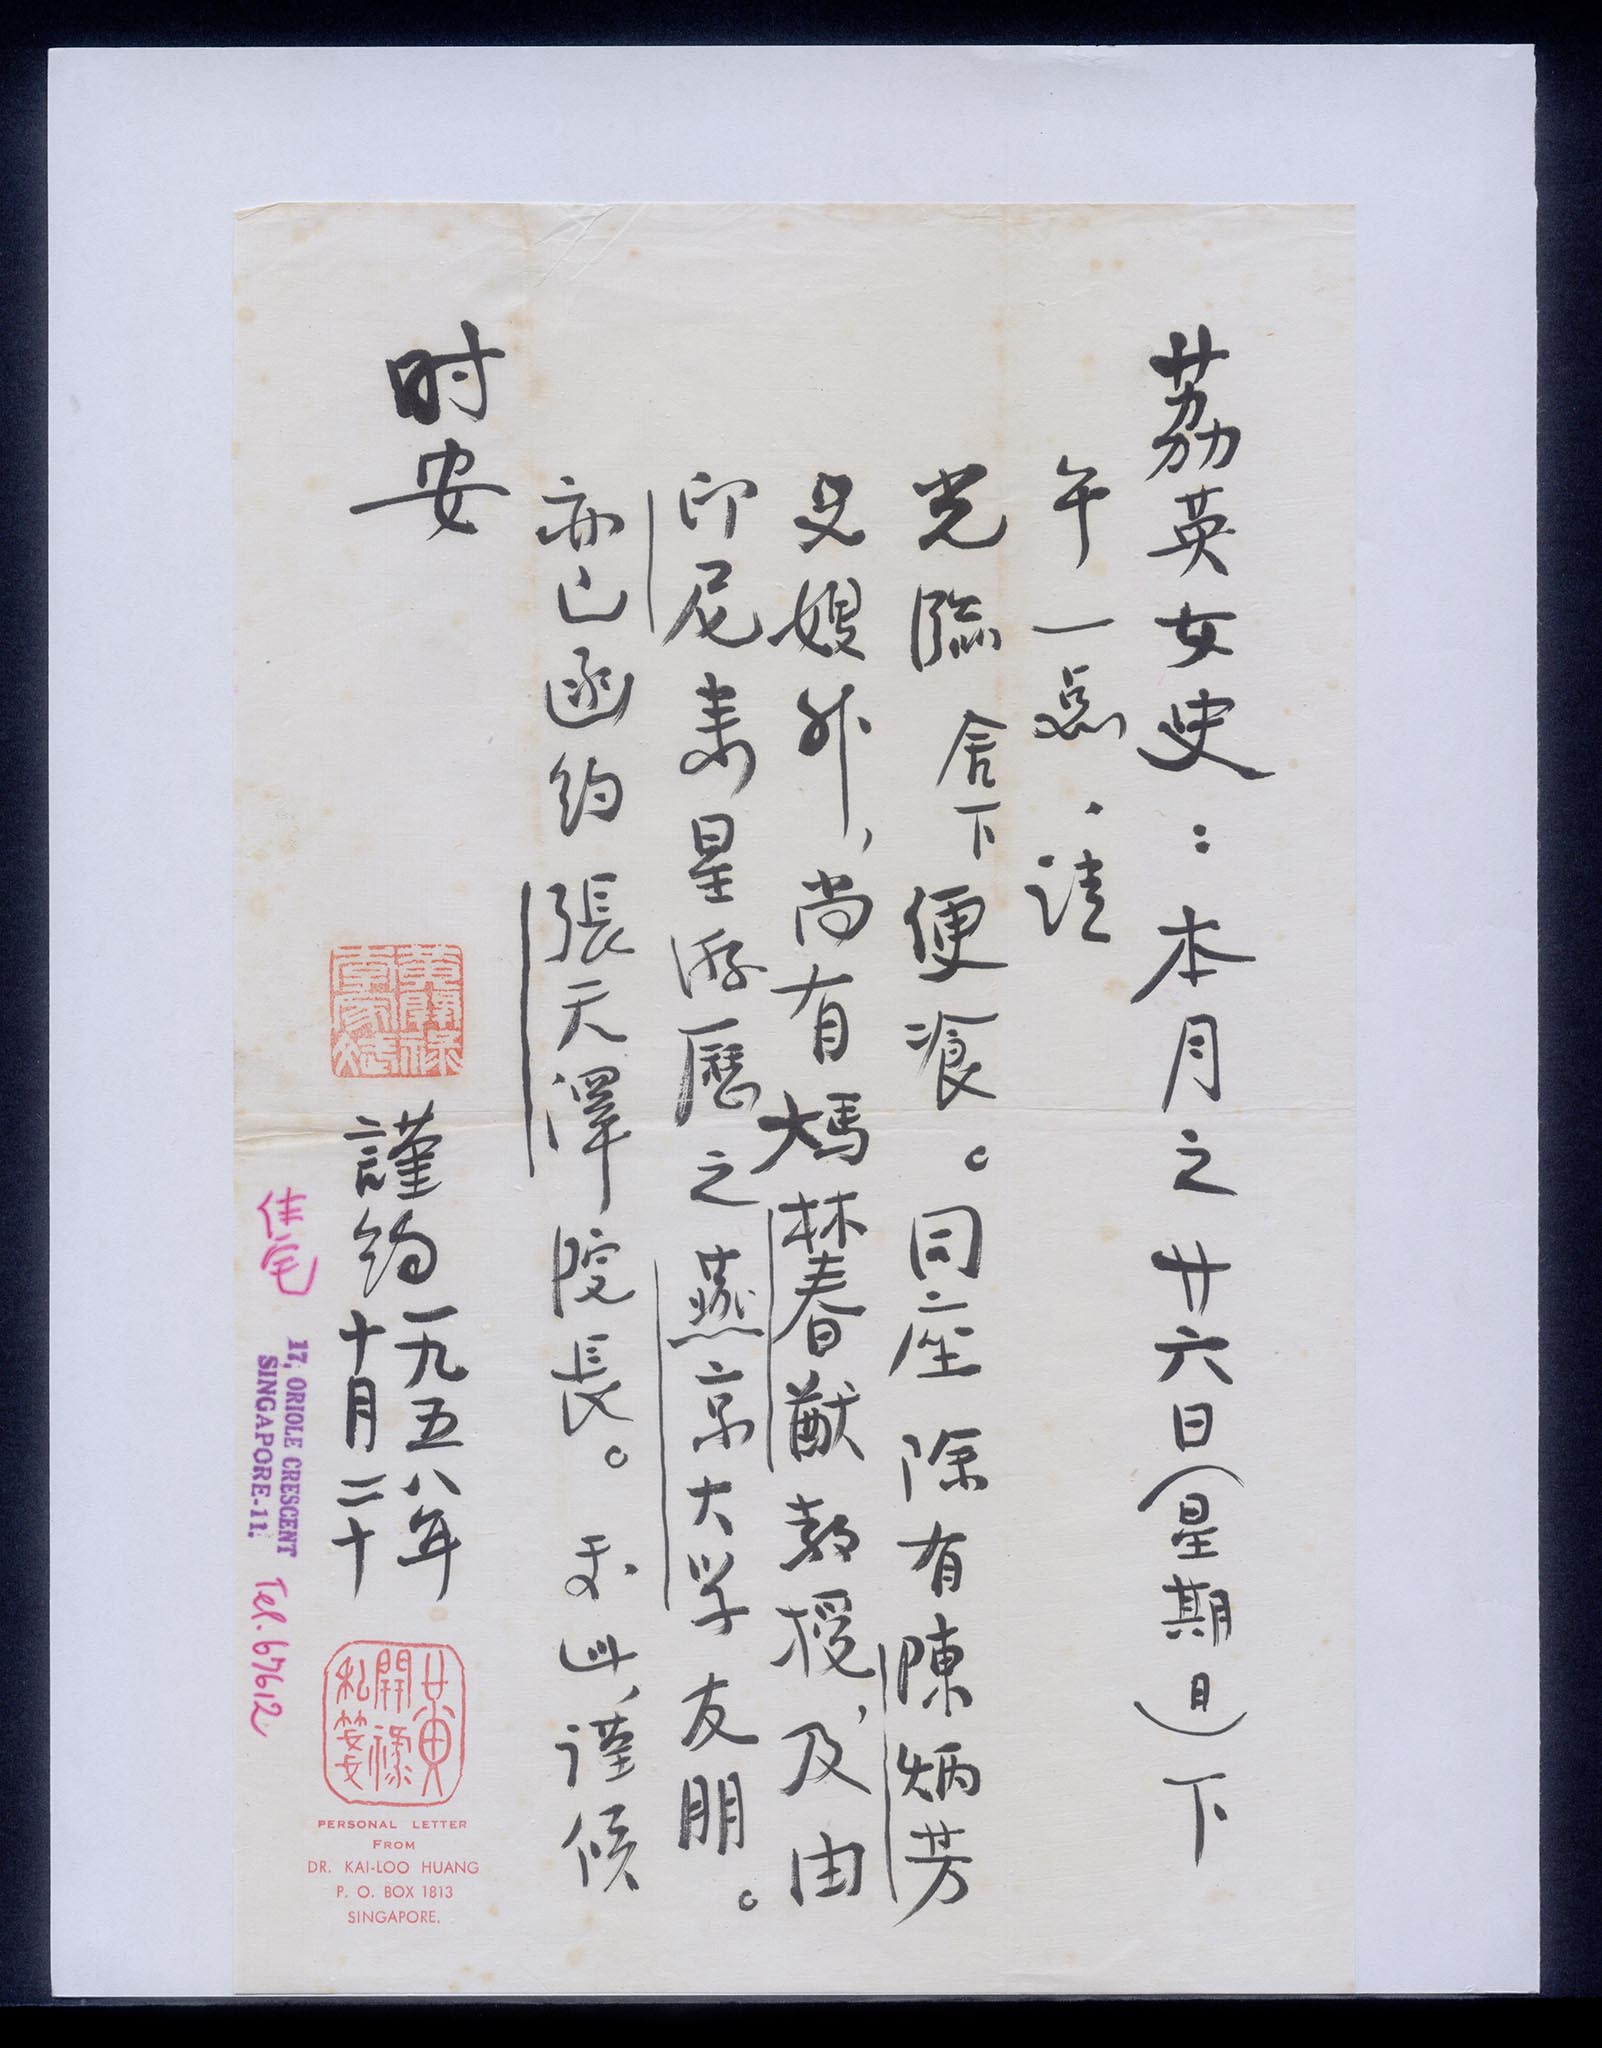 荔英女史：本月之廿六日（星期日）下
午一点，請
光臨 舍下便湌。同座除有陳炳芳
兄嫂外，尚有馮林春猷教授，及由
印尼来星游歷之燕京大学友朋。
亦已函约張天澤院長。 专此，谨候
时安
謹约 一九五八年
十月二十
黃開祿
私箋
PERSONAL LETTER
FROM
DR. KAI-LOO HUANG
P. O. BOX 1813
SINGAPORE.
住宅
17, ORIOLE CRESCENT
SINGAPORE-11.
Tel. 67612